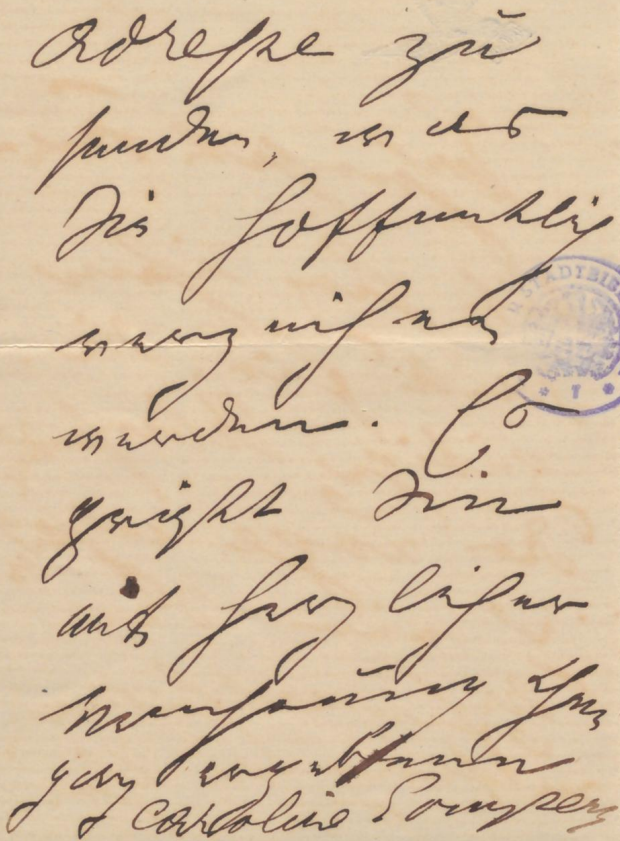 Adresse zu
senden, was
Sie hoffentlich
verzeihen
werden. Es
grüßt Sie
mit herzlicher
Verehrung Ihre
ganz ergebene
Caroline Gomperz
STADTBIB